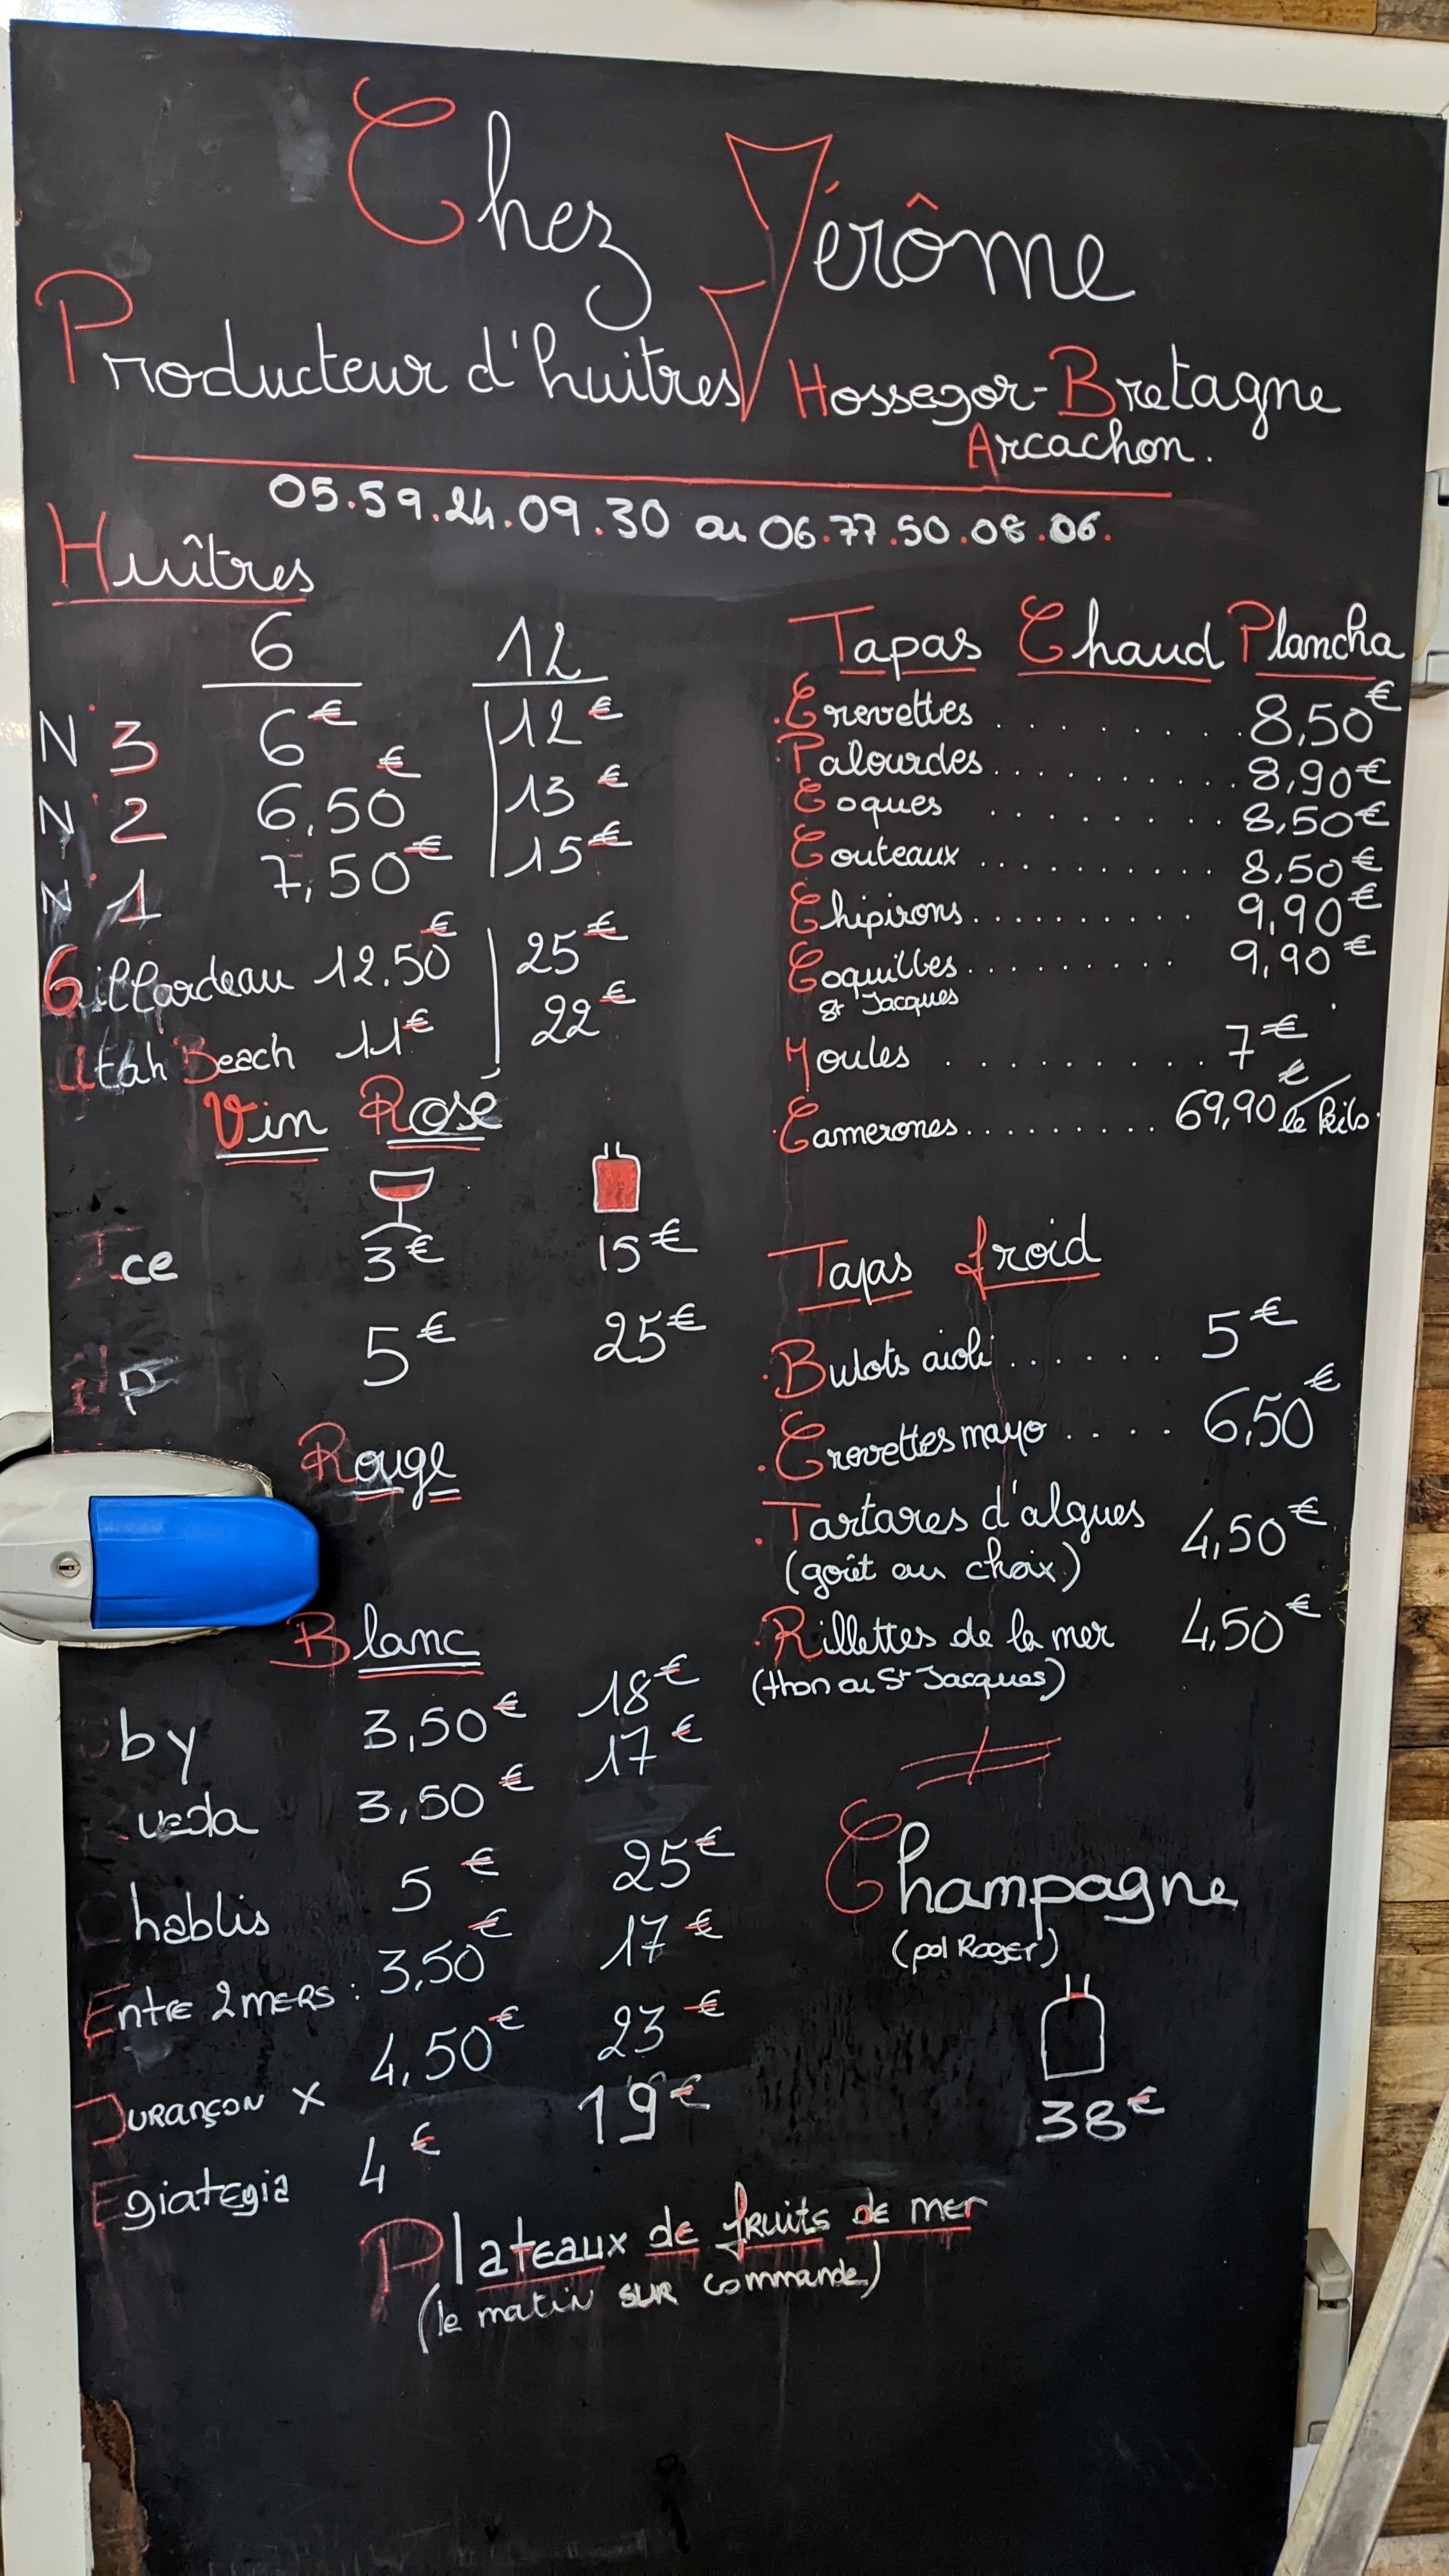 Chez Jérôme
Producteur d'huitres Hossegor-Bretagne
Arcachon.
05.59.24.09.30 ou 06.77.50.08.06.
Huîtres
6 12
N°3 6€ 12€
N°2 6,50€ 13€
N°1 7,50€ 15€
Gillardeau 12.50€ 25€
Utah Beach 11€ 22€
Vin Rosé
Ice 3€ 15€
5€ 25€
Rouge
Blanc
by 3,50€ 18€
3,50€ 17€
Chablis 5€ 25€
Entre 2 mers : 3,50€ 17€
Jurançon x 4,50€ 23€
Egiategia 4€ 19€
Tapas Chaud Plancha
.Crevettes . . . . . . . . 8,50€
.Palourdes . . . . . . . . . . 8,90€
Coques . . . . . . . . . 8,50€
Couteaux . . . . . . . . . . 8,50€
Chipirons . . . . . . . . . . 9,90€
Coquilles . . . . . . . . . 9,90€
St Jacques
Moules . . . . . . . . . . 7€
.Camerones . . . . . . . . . 69,90€/le kilo.
Tapas froid
.Bulots aioli . . . . . . 5€
.Crevettes mayo . . . . 6,50€
.Tartares d'algues 4,50€
(goût au choix)
.Rillettes de la mer 4,50€
(thon ou St Jacques)
Champagne
(pol Roger)
38€
Plateaux de fruits de mer
(le matin sur commande)